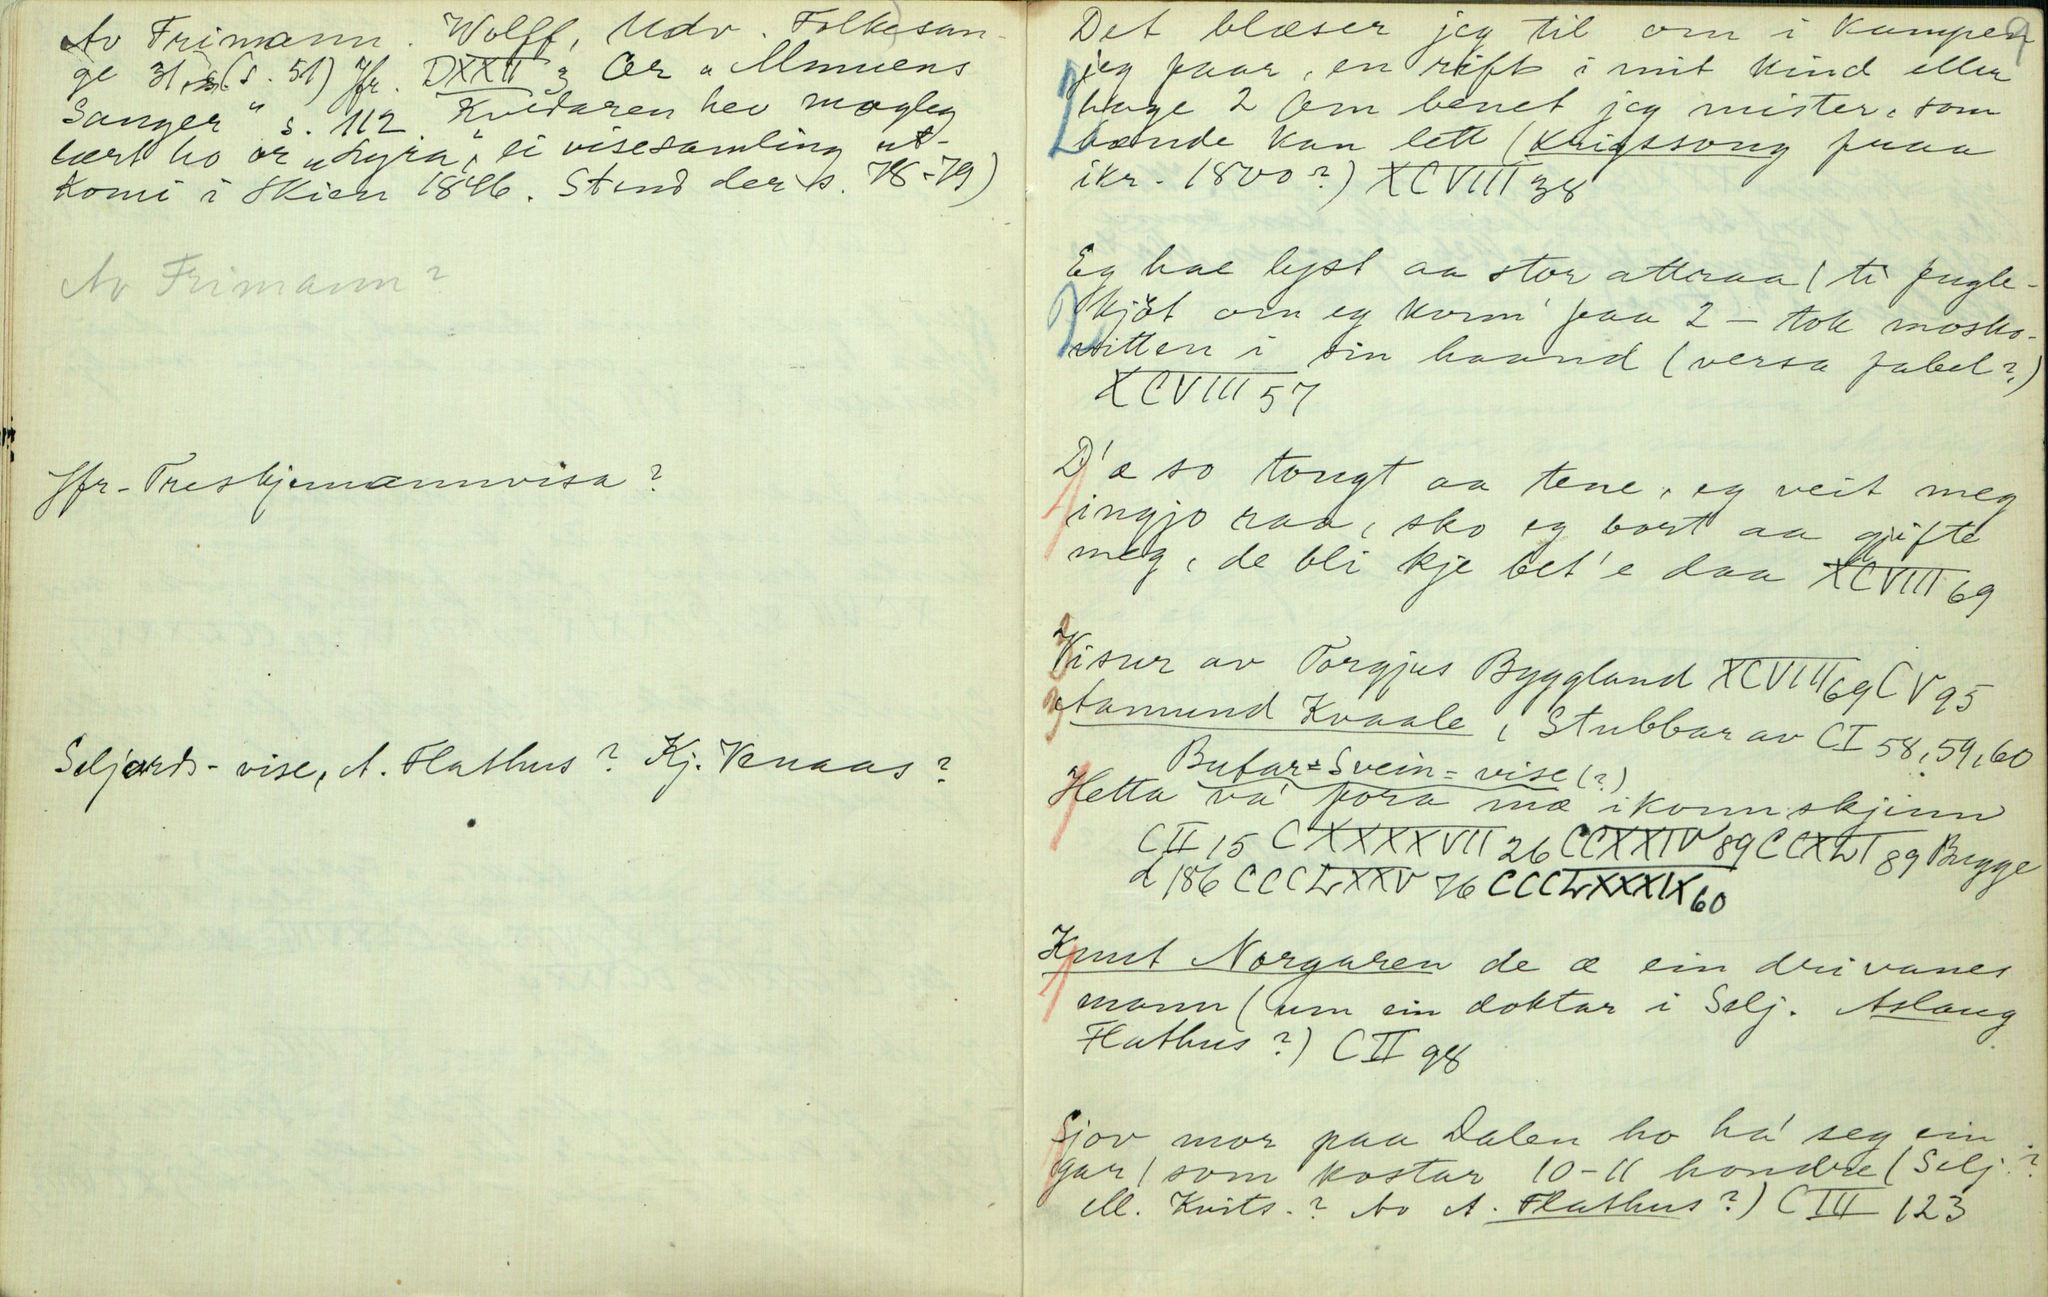 Av Frimann. Wolff, Udv. Folkesan-
ge 31, (s. 51) Jfr. DXXII 3 Or „Almuens
Sanger" s. 112. Kvedaren hev mogleg
lært ho or „Lyra", ei visesamling ut-
komi i Skien 1846. Stend der s. 78-79)
Av Frimann?
Jfr. Treskjemannvisa?
Seljords-vise, A. Flathus? Kj. Vanaas?
9
Det blæser jeg til om i kampen
jeg faar, en rift i mit kind eller
hage 2 Om benet jeg mister, som
hænde kan lett (Krigssong fraa
ikr. 1800?) XCVIII 38
2
Eg hae lyst aa stor attraa / te fugle-
kjøt om eg kom' paa 2 — tok mosko-
vitten i sin haand (versa fabel?)
XCVIII 57
2
D'æ so tongt aa tene, eg veit meg
ingjo raa, sko eg bort aa gjifte
meg, de bli kje bet'e daa XCVIII 69
1
3 Visur av Torgjus Byggland XCVIII 69 CV 95
3 Aamund Kvaale, Stubbar av CI 58, 59, 60
Bufar-Svein-vise (?)
1 Hetta va' fora mæ ikonnskjinn
CII 15 CXXXXVII 26 CCXXIV 89 CCXLI 89 Bugge
d 186 CCCLXXV 76 CCCLXXXIX 60
Knut Norgaren de æ ein drivanes
1 mann (um ein doktar i Selj. Aslaug
Flathus?) CII 98
Sjov mor paa Dalen ho ha' seg ein
1 gar / som kostar 10-11 hondre (Selj.?
M. Kvits.? Av A. Flathus?) CIII 123